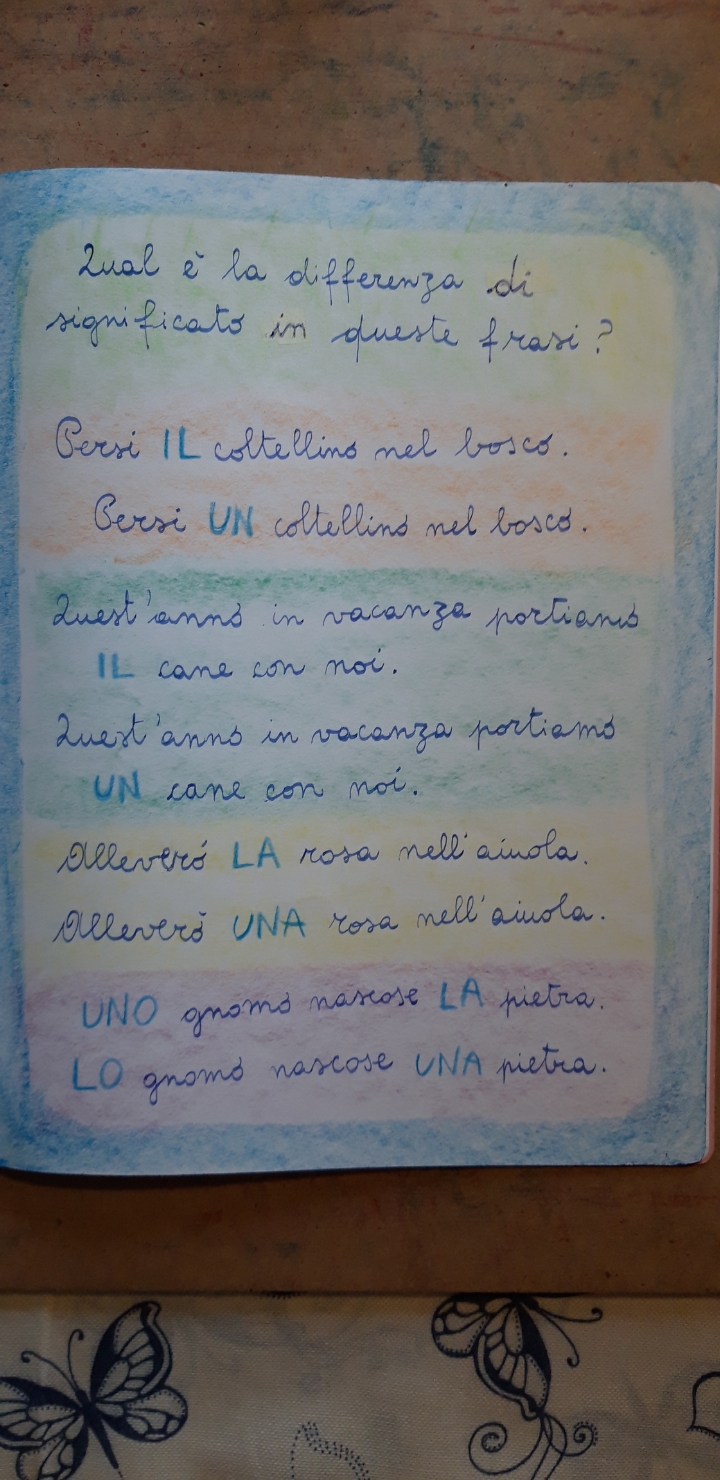 Qual è la differenza di
significato in queste frasi?
Persi IL coltellino nel bosco.
Persi UN coltellino nel bosco.
Quest'anno in vacanza portiamo
IL cane con noi.
Quest'anno in vacanza portiamo
UN cane con noi.
Alleverò LA rosa nell'aiuola.
Alleverò UNA rosa nell'aiuola.
UNO gnomo nascose LA pietra.
LO gnomo nascose UNA pietra.